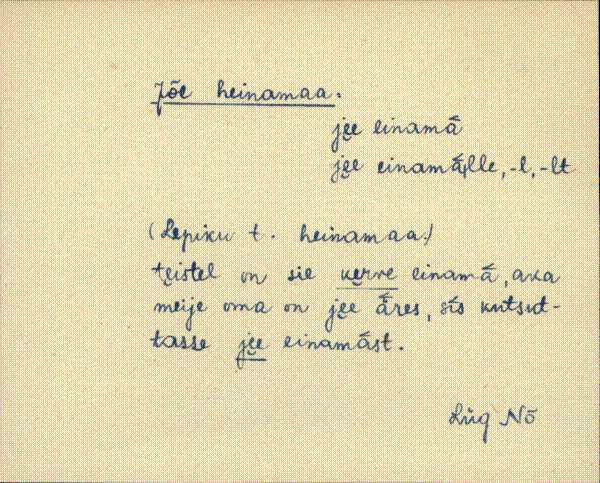 Jõe heinamaa.
jẹe einamā́
jẹe einamā́lle, -l, -lt
(Lepiku t. heinamaa.)
tẹistel on sie kẹrve einamā́, aka
meije oma on jẹe ā́res, sīs kutsut-
tasse jẹe einamā́st.
Lüg Nõ